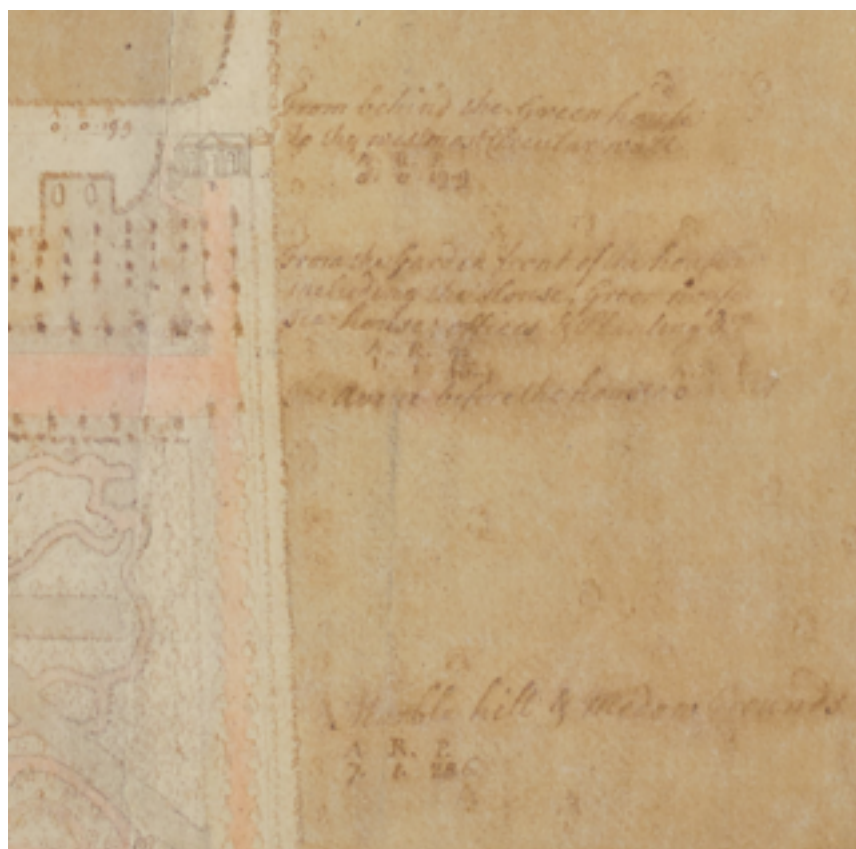 0 0 199
From behind the Green house
to the circular wall
A. R. P.
0. 0. 199
From the Garden front of the house
including the House, Green house
house offices & Planting &c
A. R. P.
1. 1.
Avenue before the house
Marble hill & medow Grounds
A R. P.
7. 1. 28